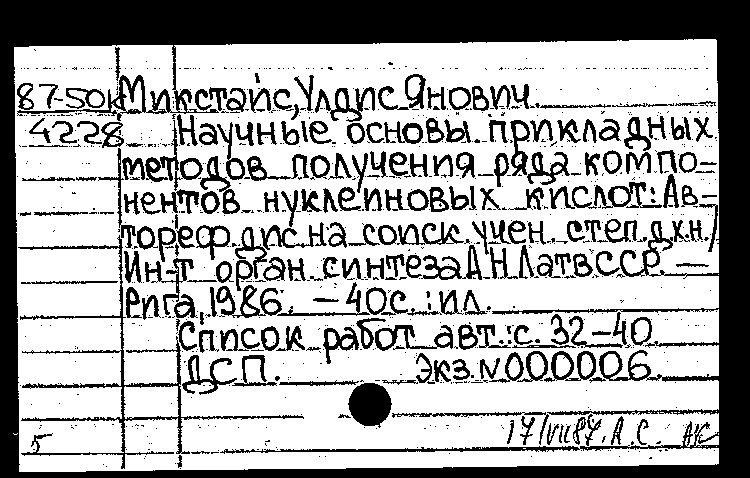 87-50к Микстайс, Улдис Янович.
4228 Научные основы прикладных
методов получения ряда компо-
нентов нуклеиновых кислот: Ав-
тореф. дис. на соиск. учен. степ. д.х.н./
Ин-т орган. синтеза АН ЛатвССР. —
Рига, 1986. — 40с. : ил.
Список работ авт.: с. 32-40
ДСП. Экз. N 000006.
5 17/VII 87. А.С.